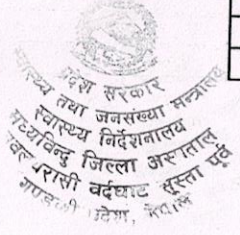 प्रदेश सरकार
स्वास्थ्य तथा जनसंख्या मन्त्रालय
स्वास्थ्य निर्देशनालय
मध्यविन्दु जिल्ला अस्पताल
नवलपरासी बर्दघाट सुस्ता पूर्व
गण्डकी प्रदेश, नेपाल